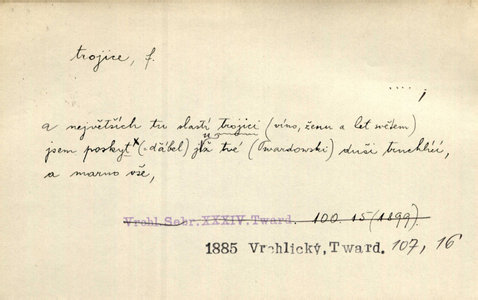 trojice, f.
a největších tu slastí trojici (víno, ženu a let světem)
jsem poskyt (= ďábel) již tvé (Twardowski) duši truchlící,
a marno vše,
Vrchl. Sebr. XXXIV. Tward. 100. 15 (1899).
1885 Vrchlický, Tward. 107, 16